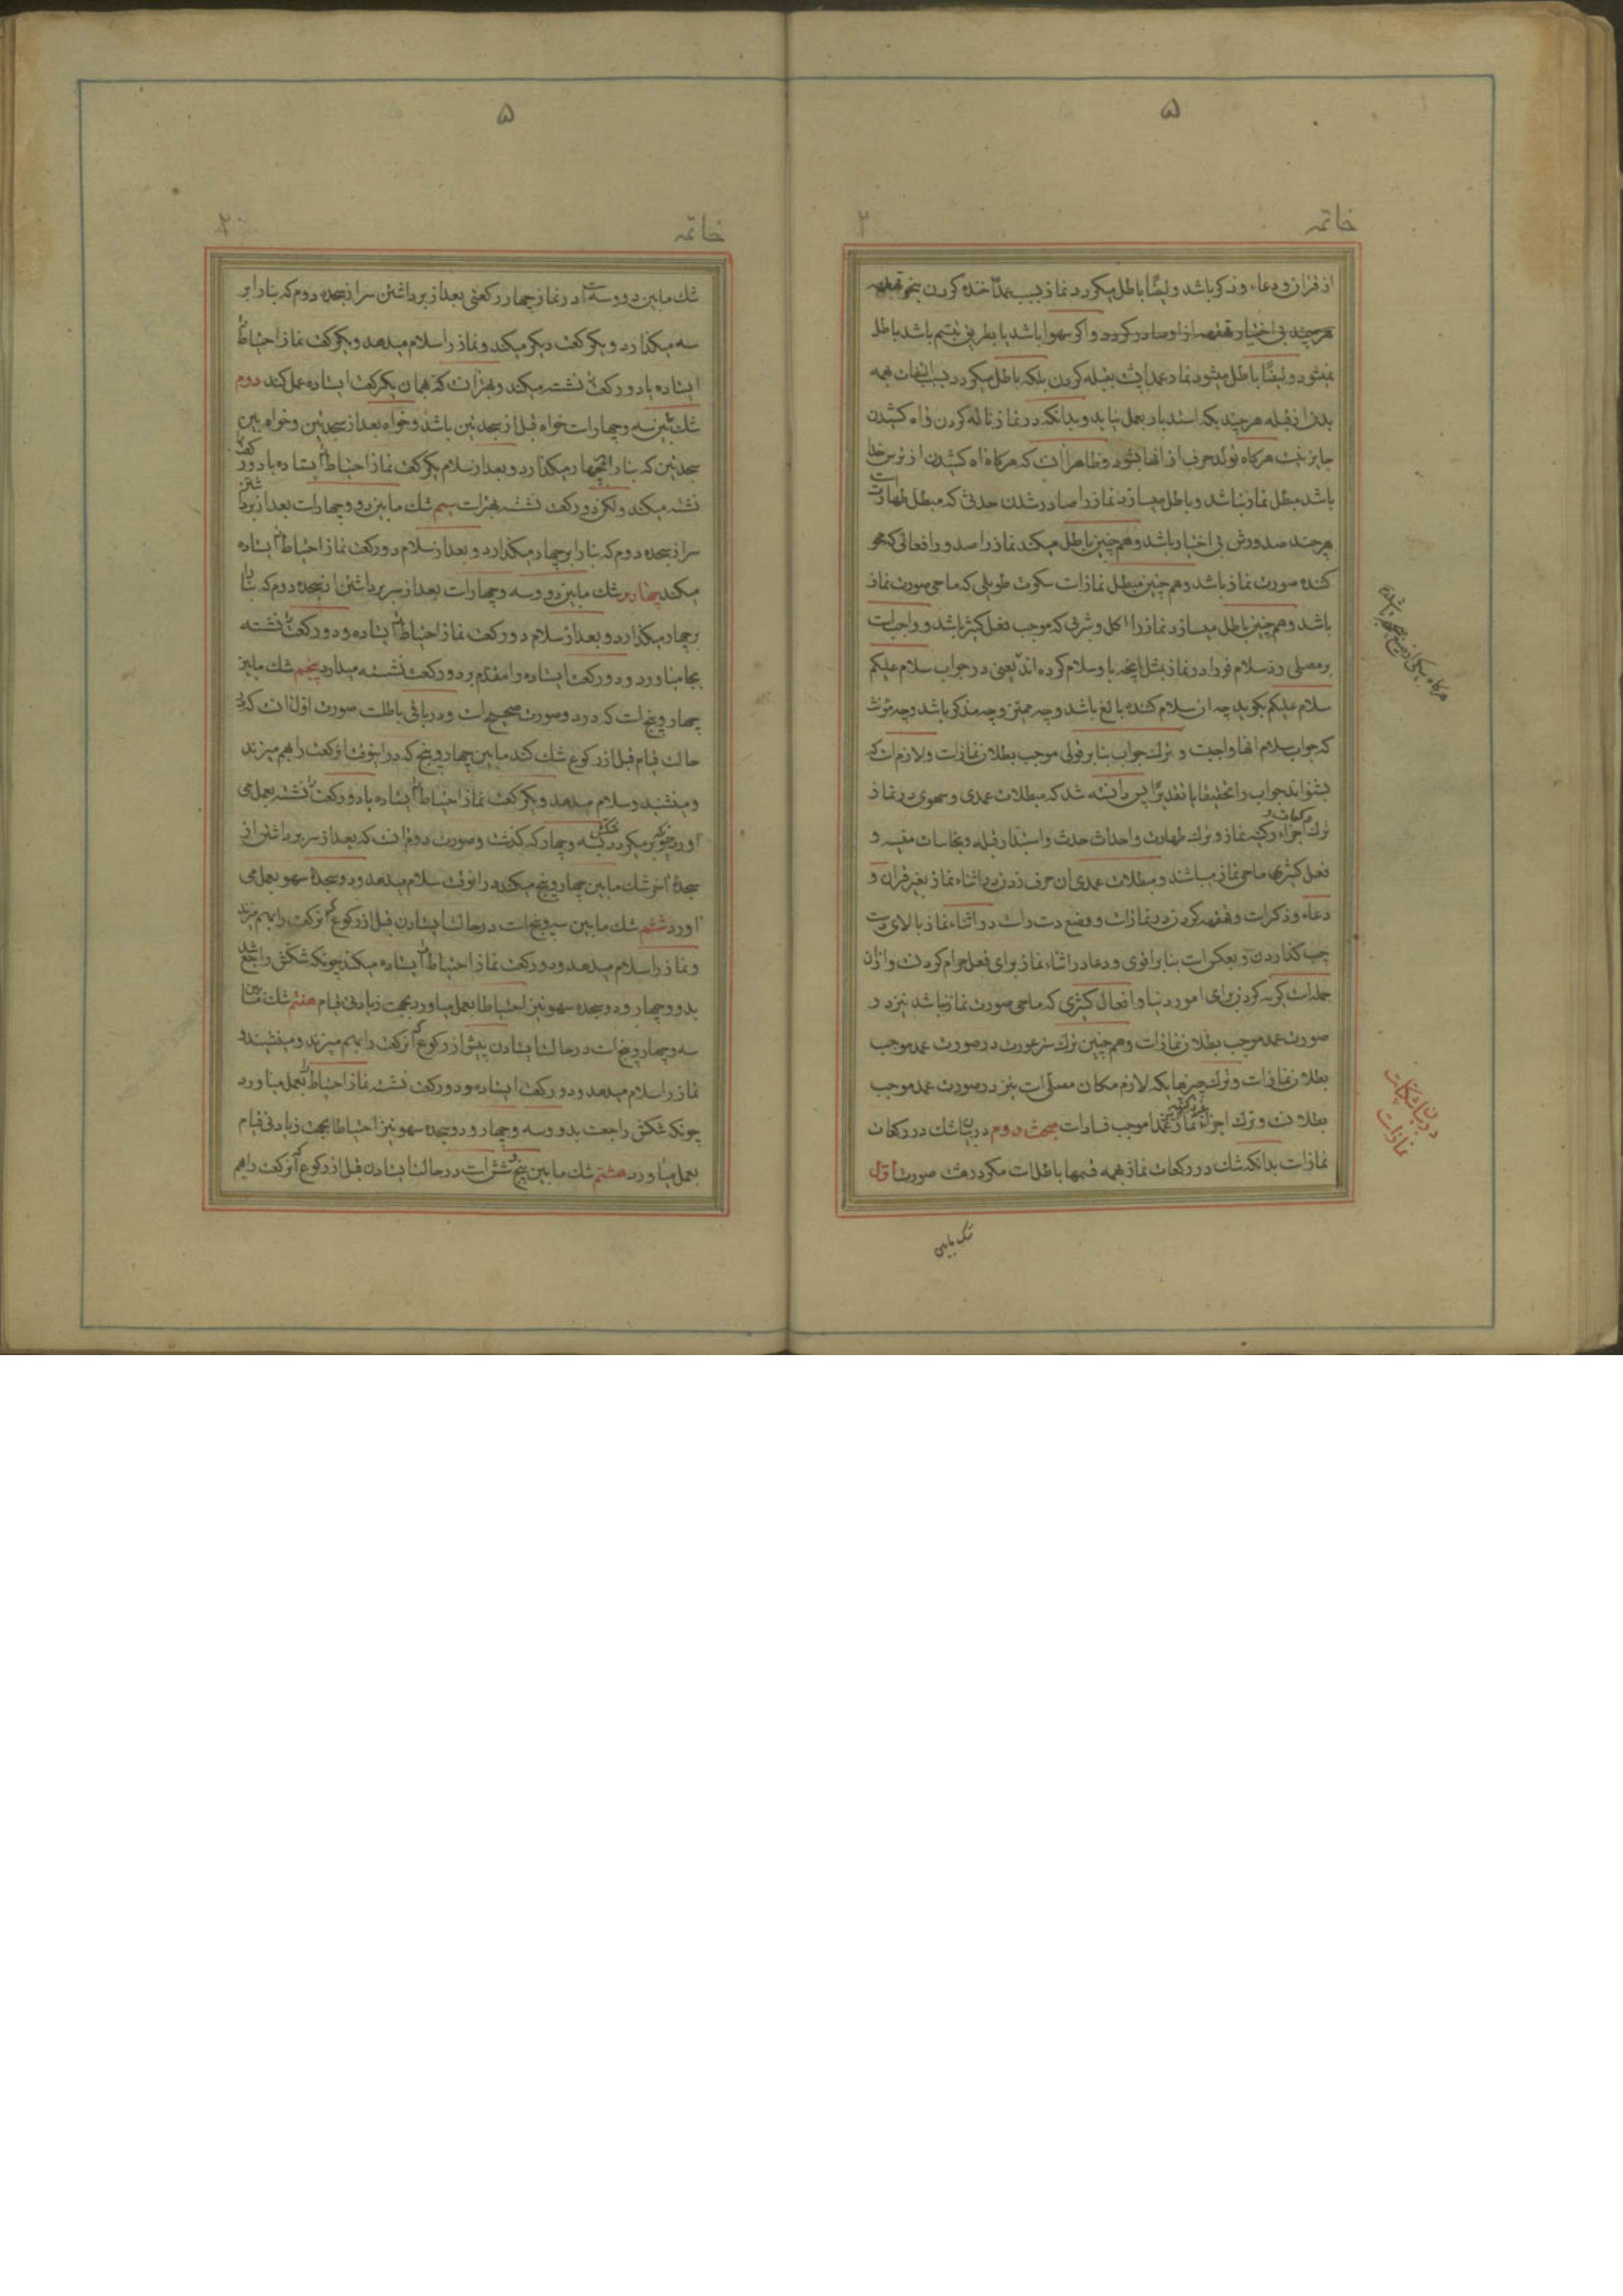 ۵
خاتمه
۲
از قرآن و دعاء و ذکر باشد و ایضًا باطل میگردد نماز بسبب عمدًا خنده کردن بنحو قهقهه
هرچند بی اختیار قهقهه از او صادر گردد و اگر سهوا باشد یا بطریق تبسم باشد باطل
نمیشود و ایضًا باطل میشود نماز عمدا پشت بقبله کردن بلکه باطل میگردد بسبب التفات همه
بدن از قبله هرچند بحد استدبار بعمل نیاید و بدانکه در نماز ناله کردن و اه کشیدن
جایز نیست هرگاه تولد حرف از انها بشود و ظاهر آنست که هرگاه اه کشیدن از ترس خدا
باشد مبطل نماز نباشد و باطل میسازد نماز را صادر شدن حدثی که مبطل طهارتست
هرچند صدورش بی اختیار باشد و همچنین باطل میکند نماز را صدور افعالی که محو
کننده صورت نماز باشد و همچنین مبطل نماز است سکوت طویلی که ماحی صورت نماز
باشد و همچنین باطل میسازد نماز را اکل و شربی که موجب فعل کثیر باشد و واجب است
بر مصلی رد سلام فورا در نماز بمثل آنچه باو سلام کرده اند یعنی در جواب سلام علیکم
سلام علیکم بگوید چه ان سلام کننده بالغ باشد و چه ممیز و چه مذکر باشد و چه مؤنث
که جواب سلام انها واجبست و ترک جواب بنا بر قولی موجب بطلان نماز است و لازم است که
بشنواند جواب را تحقیقا یا تقدیرًا پس دانسته شد که مبطلات عمدی و سهوی در نماز
ترک اجزاء رکنیه نماز و ترک طهارت و احداث حدث و استدبار قبله و
فعل کثیری ماحی نماز میباشند و مبطلات عمدی ان حرف زدن در اثناء نماز بغیر قرآن و
دعاء و ذکر است و قهقهه کردن در نماز است و وضع دست راست در اثناء نماز بالای دست
چپ گذاردن و بعکس است بنا بر اقوی و دعا در اثناء نماز برای فعل حرام کردنست و از ان
جمله است گریه کردن برای امور دنیا و افعال کثیری که ماحی صورت نماز نباشد نیز در
صورت عمد موجب بطلان نماز است و همچنین ترک ستر عورت در صورت عمد موجب
بطلان نماز است و ترک چیزهایکه لازم مکان مصلی است نیز در صورت عمد موجب
بطلانست و ترک اجزاء غیر رکنیه نماز عمدا موجب فساد است مبحث دوم در بیان شک در رکعات
نماز است بدانکه شک در رکعات نماز همه قسمها باطل است مگر در هشت صورت اول
در بیان شکیات
نماز است
شک مابین
۵
خاتمه
۲۰
شک مابین دو و سه است در نماز چهار رکعتی بعد از برداشتن سر از سجده دوم که بنا را بر
سه میگذارد و یکرکعت دیگر میکند و نماز را سلام میدهد و یکرکعت نماز احتیاط را
ایستاده یا دو رکعت را نشسته میکند و بهتر آنست که همان یکرکعت ایستاده عمل کند دوم
شک بین سه و چهار است خواه قبل از سجدتین باشد و خواه بعد از سجدتین و خواه بین
سجدتین که بنا را بچهار میگذارد و بعد از سلام یکرکعت نماز احتیاط را ایستاده یا دو رکعت را
نشسته میکند و لکن دو رکعت نشسته بهتر است سیم شک مابین دو و چهار است بعد از برداشتن
سر از سجده دوم که بنا را بر چهار میگذارد و بعد از سلام دو رکعت نماز احتیاط را ایستاده
میکند چهارم شک مابین دو و سه و چهار است بعد از سر برداشتن از سجده دوم که بنا را
بر چهار میگذارد و بعد از سلام دو رکعت نماز احتیاط را ایستاده و دو رکعت را نشسته
بجا میاورد و دو رکعت ایستاده را مقدم بر دو رکعت نشسته میدارد پنجم شک مابین
چهار و پنج است که در دو صورت صحیح است و در باقی باطلست صورت اول آنست که در
حالت قیام قبل از رکوع شک کند مابین چهار و پنج که در اینوقت آنرکعت را بهم میزند
و مینشیند و سلام میدهد و یکرکعت نماز احتیاط را ایستاده یا دو رکعت را نشسته بعمل می
اورد چونکه بر میگردد شکش بسه و چهار که گذشت و صورت دوم آنست که بعد از سر برداشتن از
سجدهٔ اخر شک مابین چهار و پنج میکند در انوقت سلام میدهد و دو سجدهٔ سهو بعمل می
اورد ششم شک مابین سه و پنج است در حالت ایستادن قبل از رکوع که آنرکعت را بهم میزند
و نماز را سلام میدهد و دو رکعت نماز احتیاط را ایستاده میکند چونکه شکش راجع شد
بدو و چهار و دو سجده سهو نیز احتیاطا بعمل میاورد بجهت زیادتی قیام هفتم شک مابین
سه و چهار و پنج است در حالت ایستادن پیش از رکوع که آنرکعت را بهم میزند و مینشیند و
نماز را سلام میدهد و دو رکعت ایستاده و دو رکعت نشسته نماز احتیاط را بعمل میاورد
چونکه شکش راجعست بدو و سه و چهار و دو سجده سهو نیز احتیاطا بجهت زیادتی قیام
بعمل میاورد هشتم شک مابین پنج و شش است در حالت ایستادن قبل از رکوع که آنرکعت را بهم